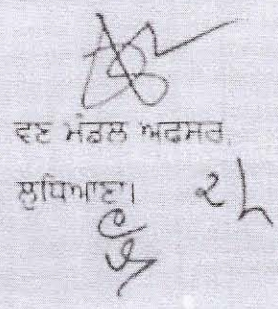 ਵਣ ਮੰਡਲ ਅਫਸਰ,
ਲੁਧਿਆਣਾ।